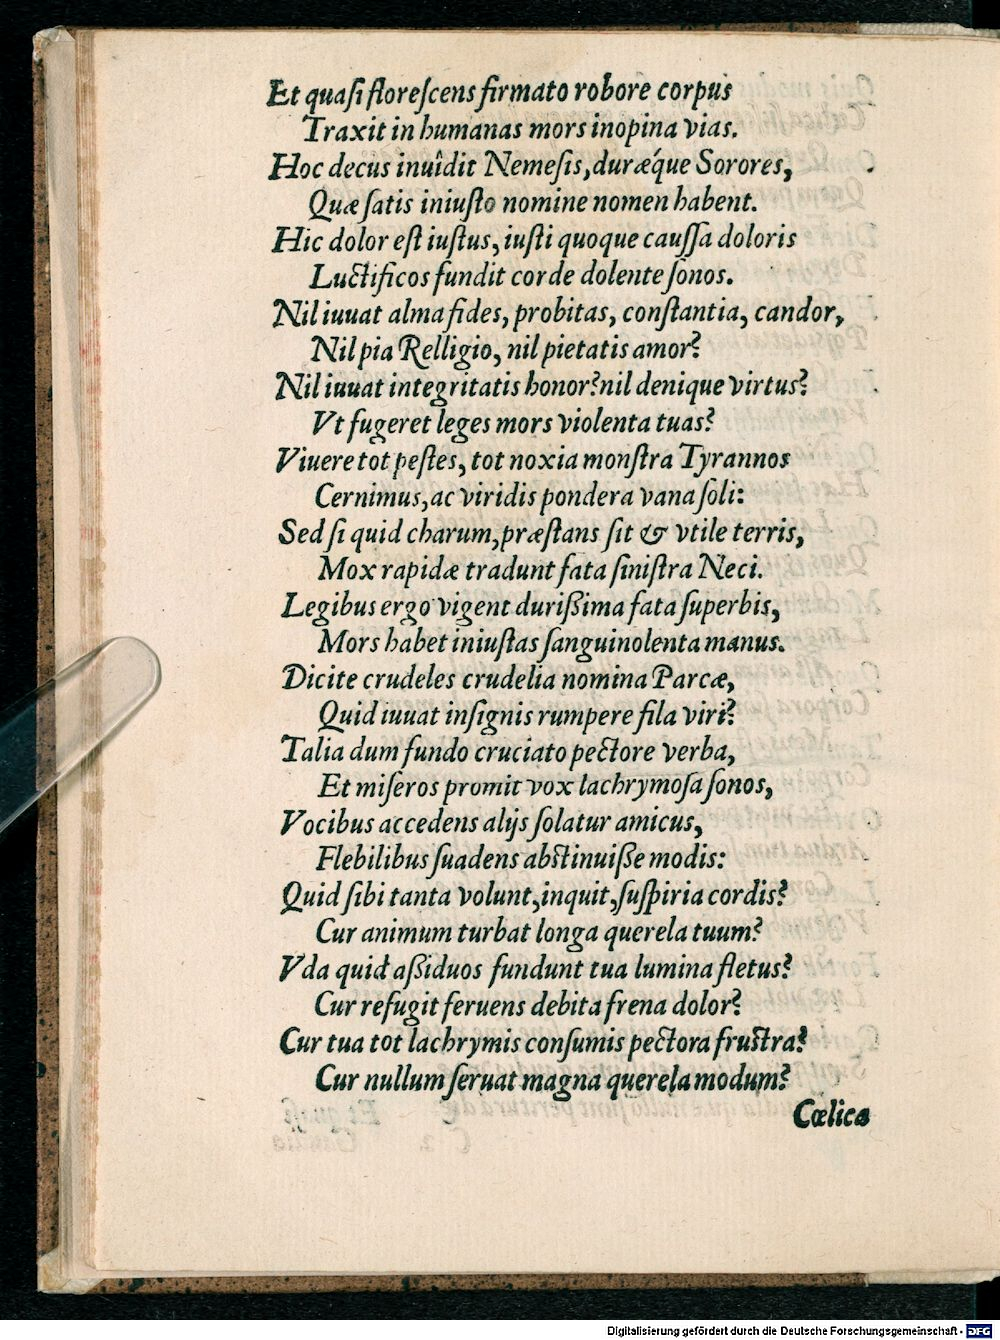 Et quaſi floreſcens firmato robore corpus
Traxit in humanas mors inopina vias.
Hoc decus inuîdit Nemeſis, duræq́ue Sorores,
Quæ ſatis iniuſto nomine nomen habent.
Hic dolor eſt iuſtus, iuſti quoque cauſſa doloris
Luctificos fundit corde dolente ſonos.
Nil iuuat alma fides, probitas, conſtantia, candor,
Nil pia Relligio, nil pietatis amor?
Nil iuuat integritatis honor? nil denique virtus?
Vt fugeret leges mors violenta tuas?
Viuere tot peſtes, tot noxia monſtra Tyrannos
Cernimus, ac viridis pondera vana ſoli:
Sed ſi quid charum, præſtans ſit & vtile terris,
Mox rapidæ tradunt fata ſiniſtra Neci.
Legibus ergo vigent durißima fata ſuperbis,
Mors habet iniuſtas ſanguinolenta manus.
Dicite crudeles crudelia nomina Parcæ,
Quid iuuat inſignis rumpere fila viri?
Talia dum fundo cruciato pectore verba,
Et miſeros promit vox lachrymoſa ſonos,
Vocibus accedens alijs ſolatur amicus,
Flebilibus ſuadens abſtinuiße modis:
Quid ſibi tanta volunt, inquit, ſuſpiria cordis?
Cur animum turbat longa querela tuum?
Vda quid aßiduos fundunt tua lumina fletus?
Cur refugit feruens debita frena dolor?
Cur tua tot lachrymis conſumis pectora fruſtra?
Cur nullum ſeruat magna querela modum?
Cœlica
Digitalisierung gefördert durch die Deutsche Forschungsgemeinschaft - DFG